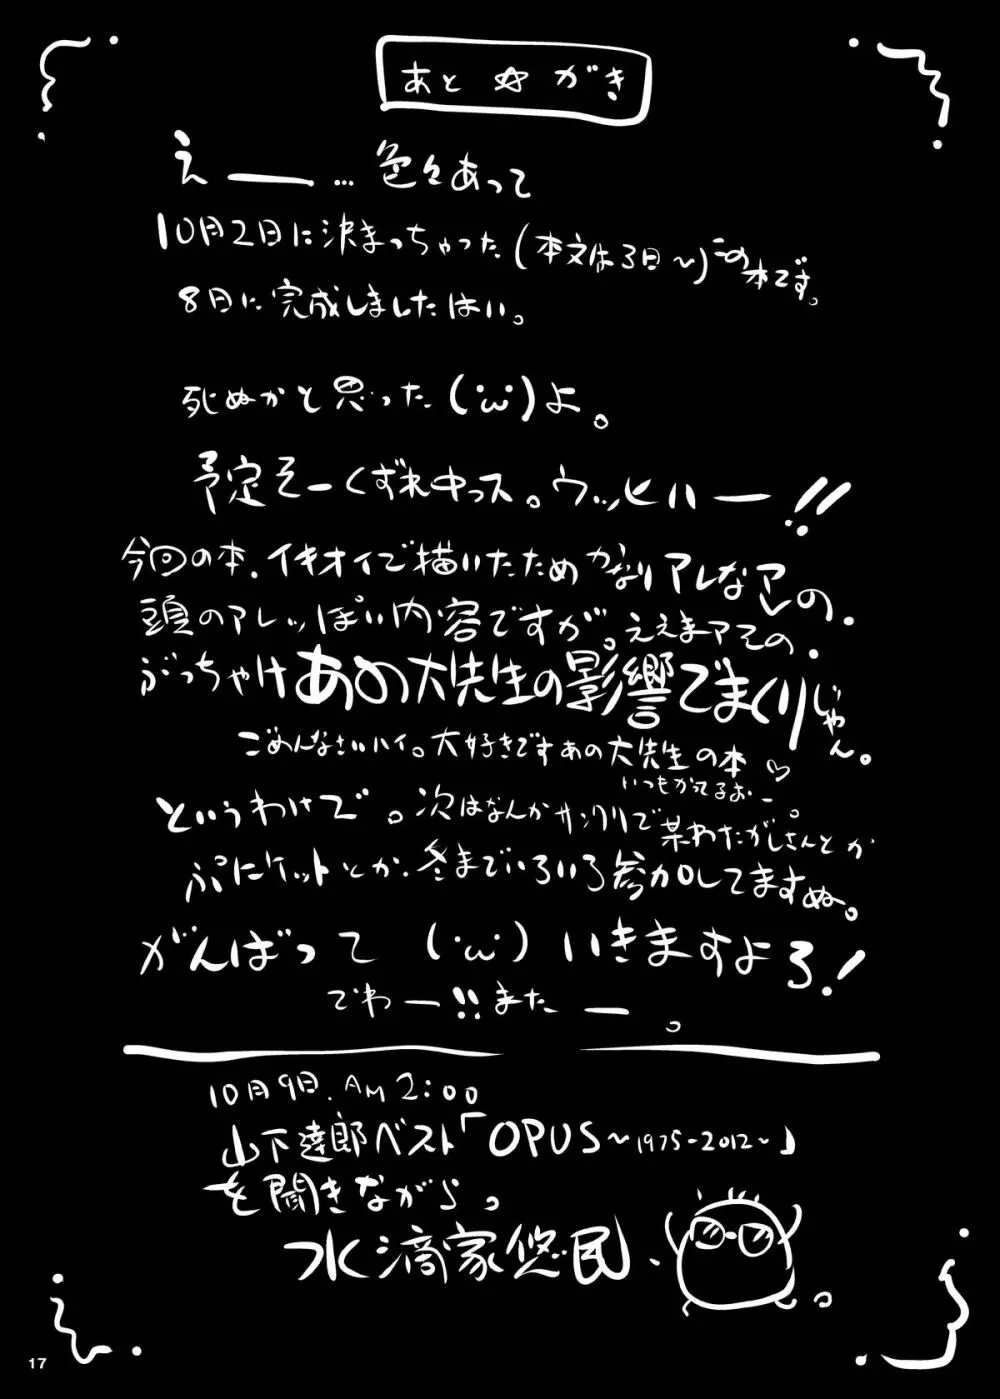 あと☆がき
えー…色々あって
10月2日に決まっちゃった(本文は3日〜)この本です。
8日に完成しましたはい。
死ぬかと思った(´･ω･`)よ。
予定そーくずれ中っス。ウッヒハー!!
今回の本、イキオイで描いたためかなりアレなアレの、
頭のアレっぽい内容ですが。ええまアその、
ぶっちゃけあの大先生の影響でまくりじゃん。
ごめんなさいハイ。大好きですあの大先生の本♡
いつもかってるおー。
というわけで。次はなんかサンクリで某わたがしさんとか
ぷにケットとか、冬までいろいろ参加してますぬ。
がんばって(･ω･)いきますよろ!
でわー!!またー。
10月9日.AM2:00
山下達郎ベスト「OPUS〜1975-2012〜」
を聞きながら。
水滴家悠民、
17